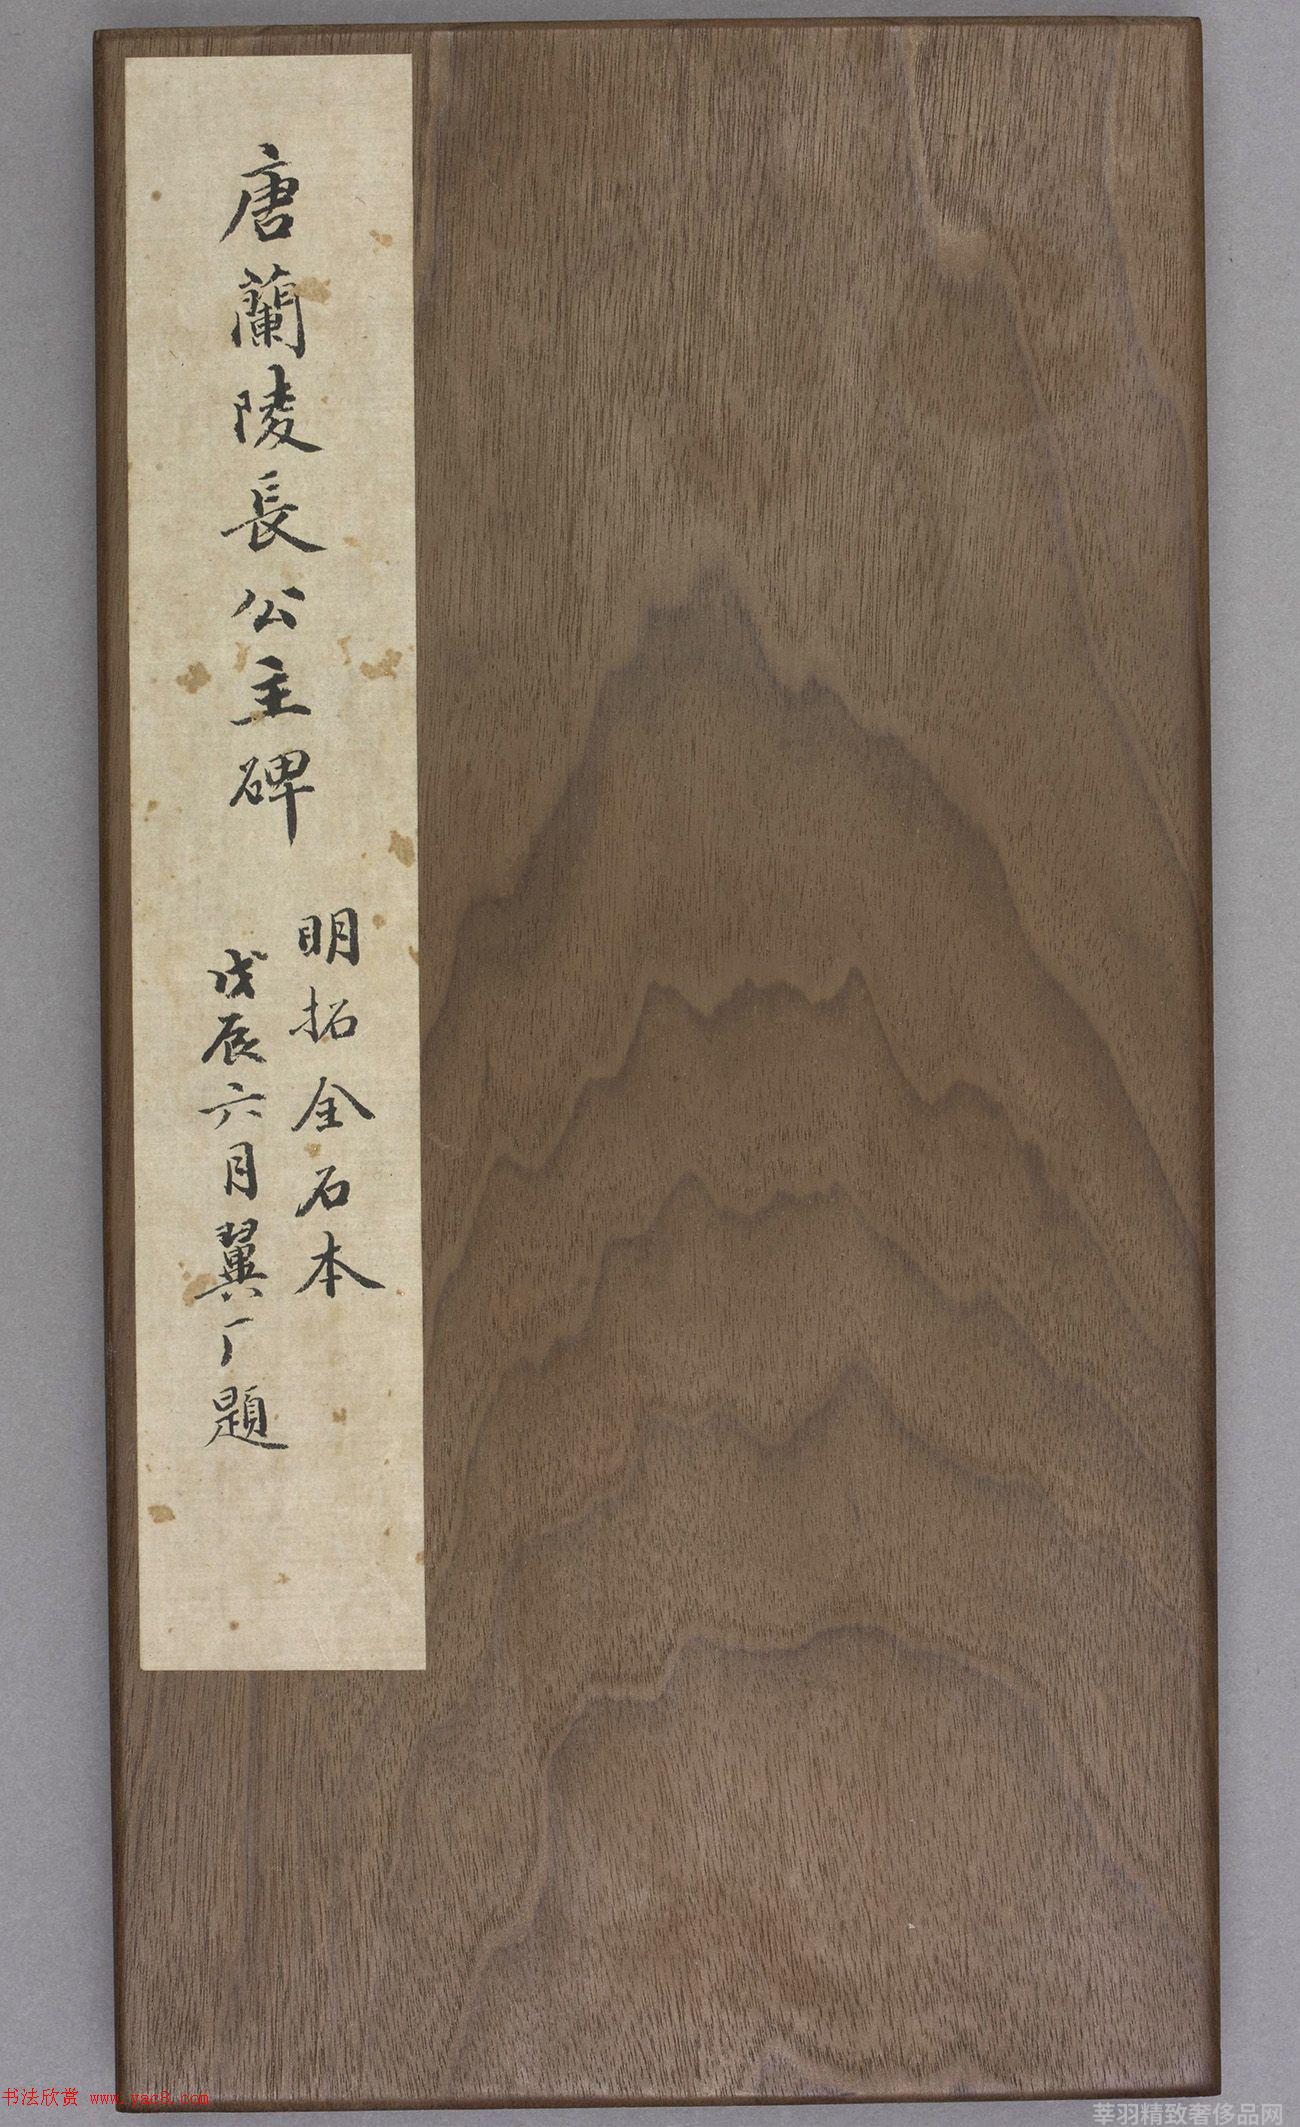 唐蘭陵長公主碑
明拓全石本
戊辰六月翼厂題
书法欣赏 www.yac8.com
莘羽精致奢侈品网